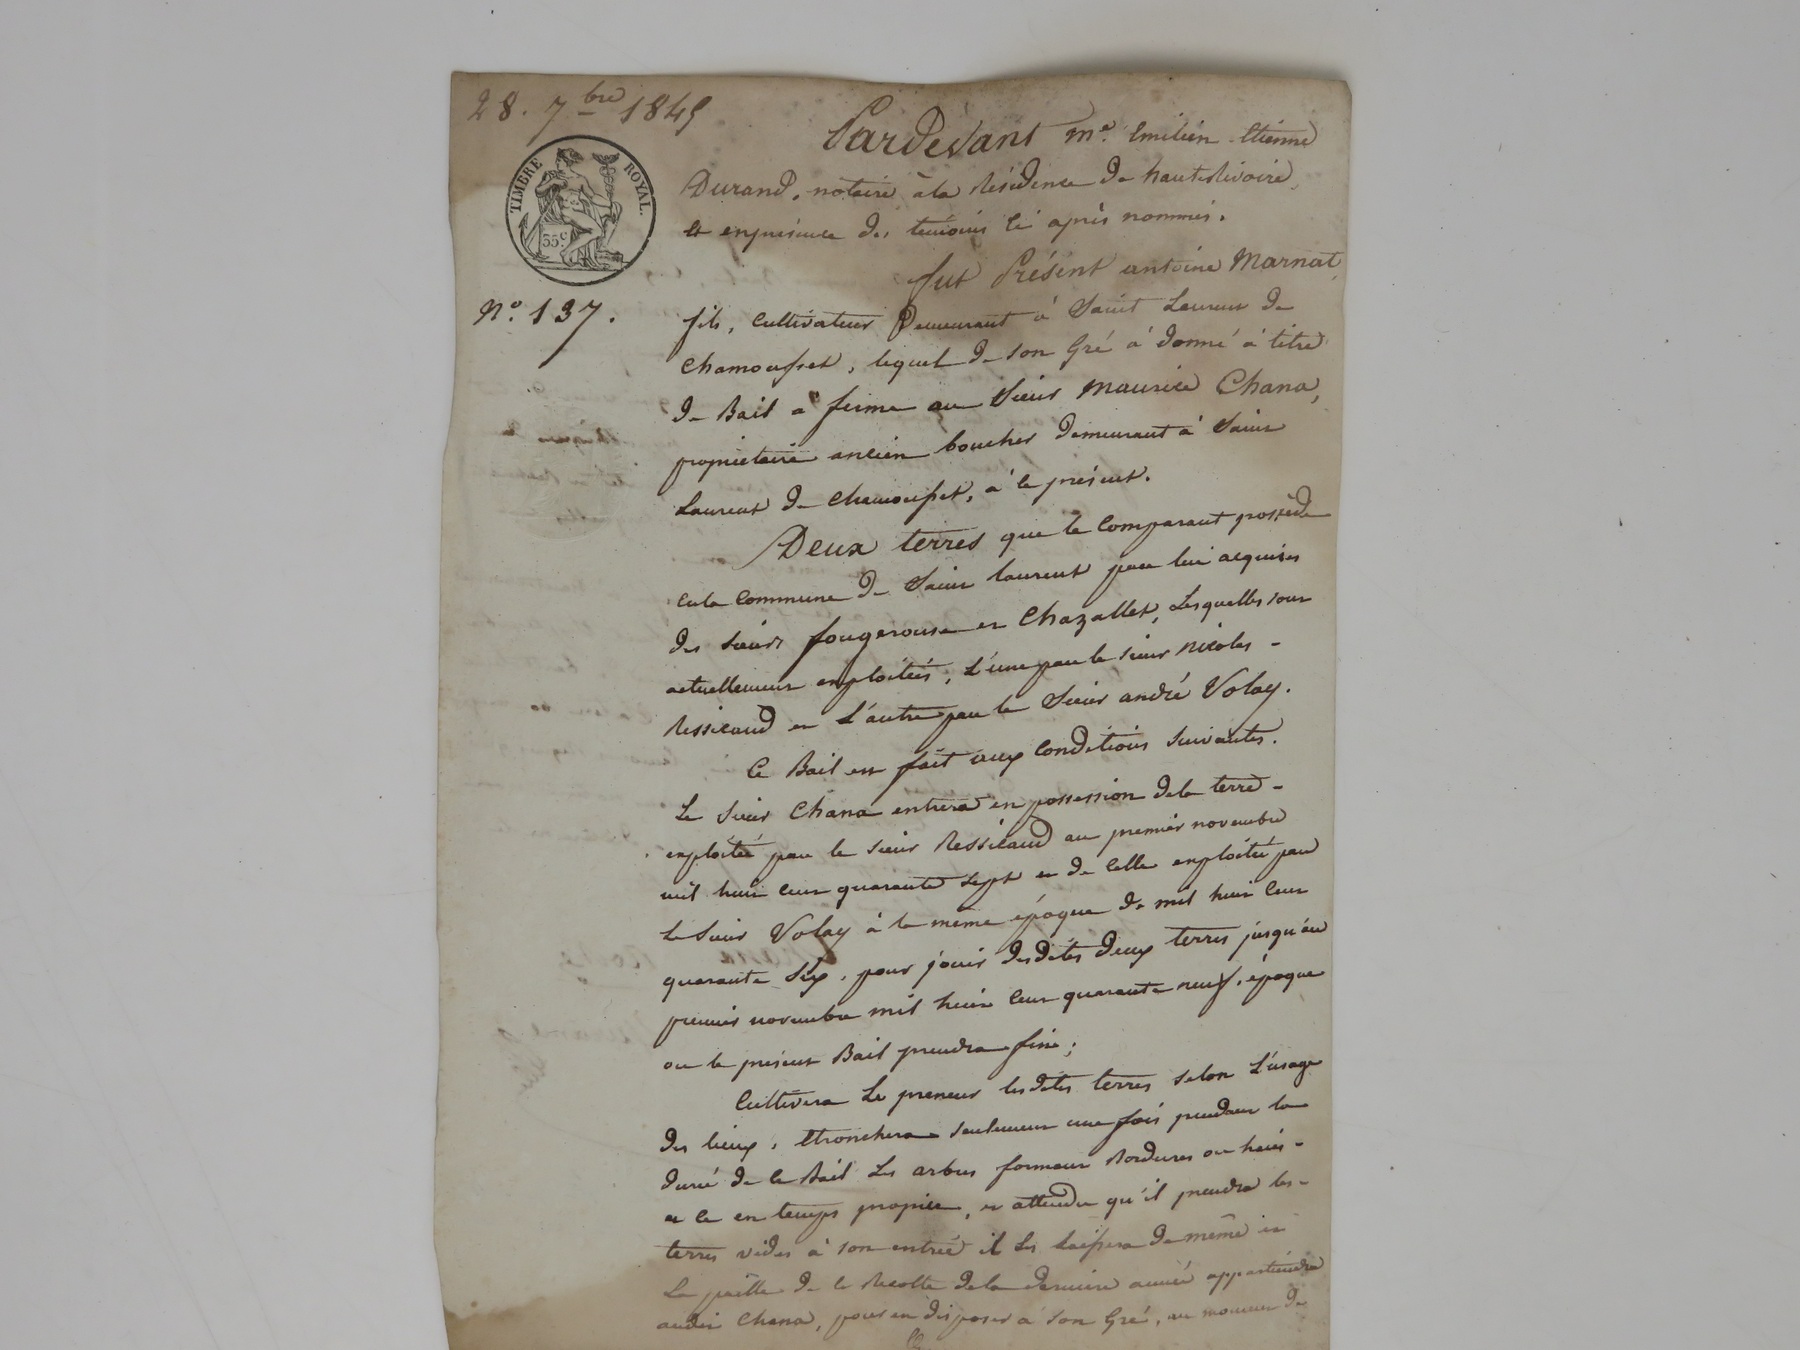 28. 7bre 1845
TIMBRE ROYAL.
35c
No. 137.
Pardevant me. Emilien Etienne
Durand, notaire à la Résidence de hauterivoire,
et en présence des témoins ci après nommés.
fut Présent antoine Marnat,
fils, Cultivateur Demeurant à Saint Laurent de
Chamousset, lequel de son Gré à donné à titre
de Bail à ferme au Sieur Maurice Chana,
propriétaire ancien boucher demeurant à Saint
Laurent de Chamousset, à ce présent.
Deux terres que le Comparant possède
en la Commune de Saint laurent par lui acquises
des Sieurs fougerouse et Chazallet, Lesquelles sont
actuellement exploitées, L'une par le sieur Nicolas -
Ressicaud et L'autre par le Sieur andré Volay.
Ce Bail est fait aux Conditions Suivantes.
Le Sieur Chana entrera en possession de la terre -
exploitée par le sieur Ressicaud au premier novembre
mil huit cent quarante sept et de Celle exploitée par
le Sieur Volay à la meme époque de mil huit Cent
quarante Six, pour jouir desdites deux terres jusqu'au
premier novembre mil huit Cent quarante neuf, époque
ou le présent Bail prendra fin;
Cultivera Le preneur les dites terres Selon L'usage
des lieux, Etronchera seulement une fois pendant la
durée de ce Bail Les arbres formant Bordures ou haies -
et ce en temps propice, et attendu qu'il prendra les -
terres vides à son entrée il les laissera de même et
La paille de la Recolte de la derniere année appartiendra
audit Chana, pour en disposer à son Gré, au moment de